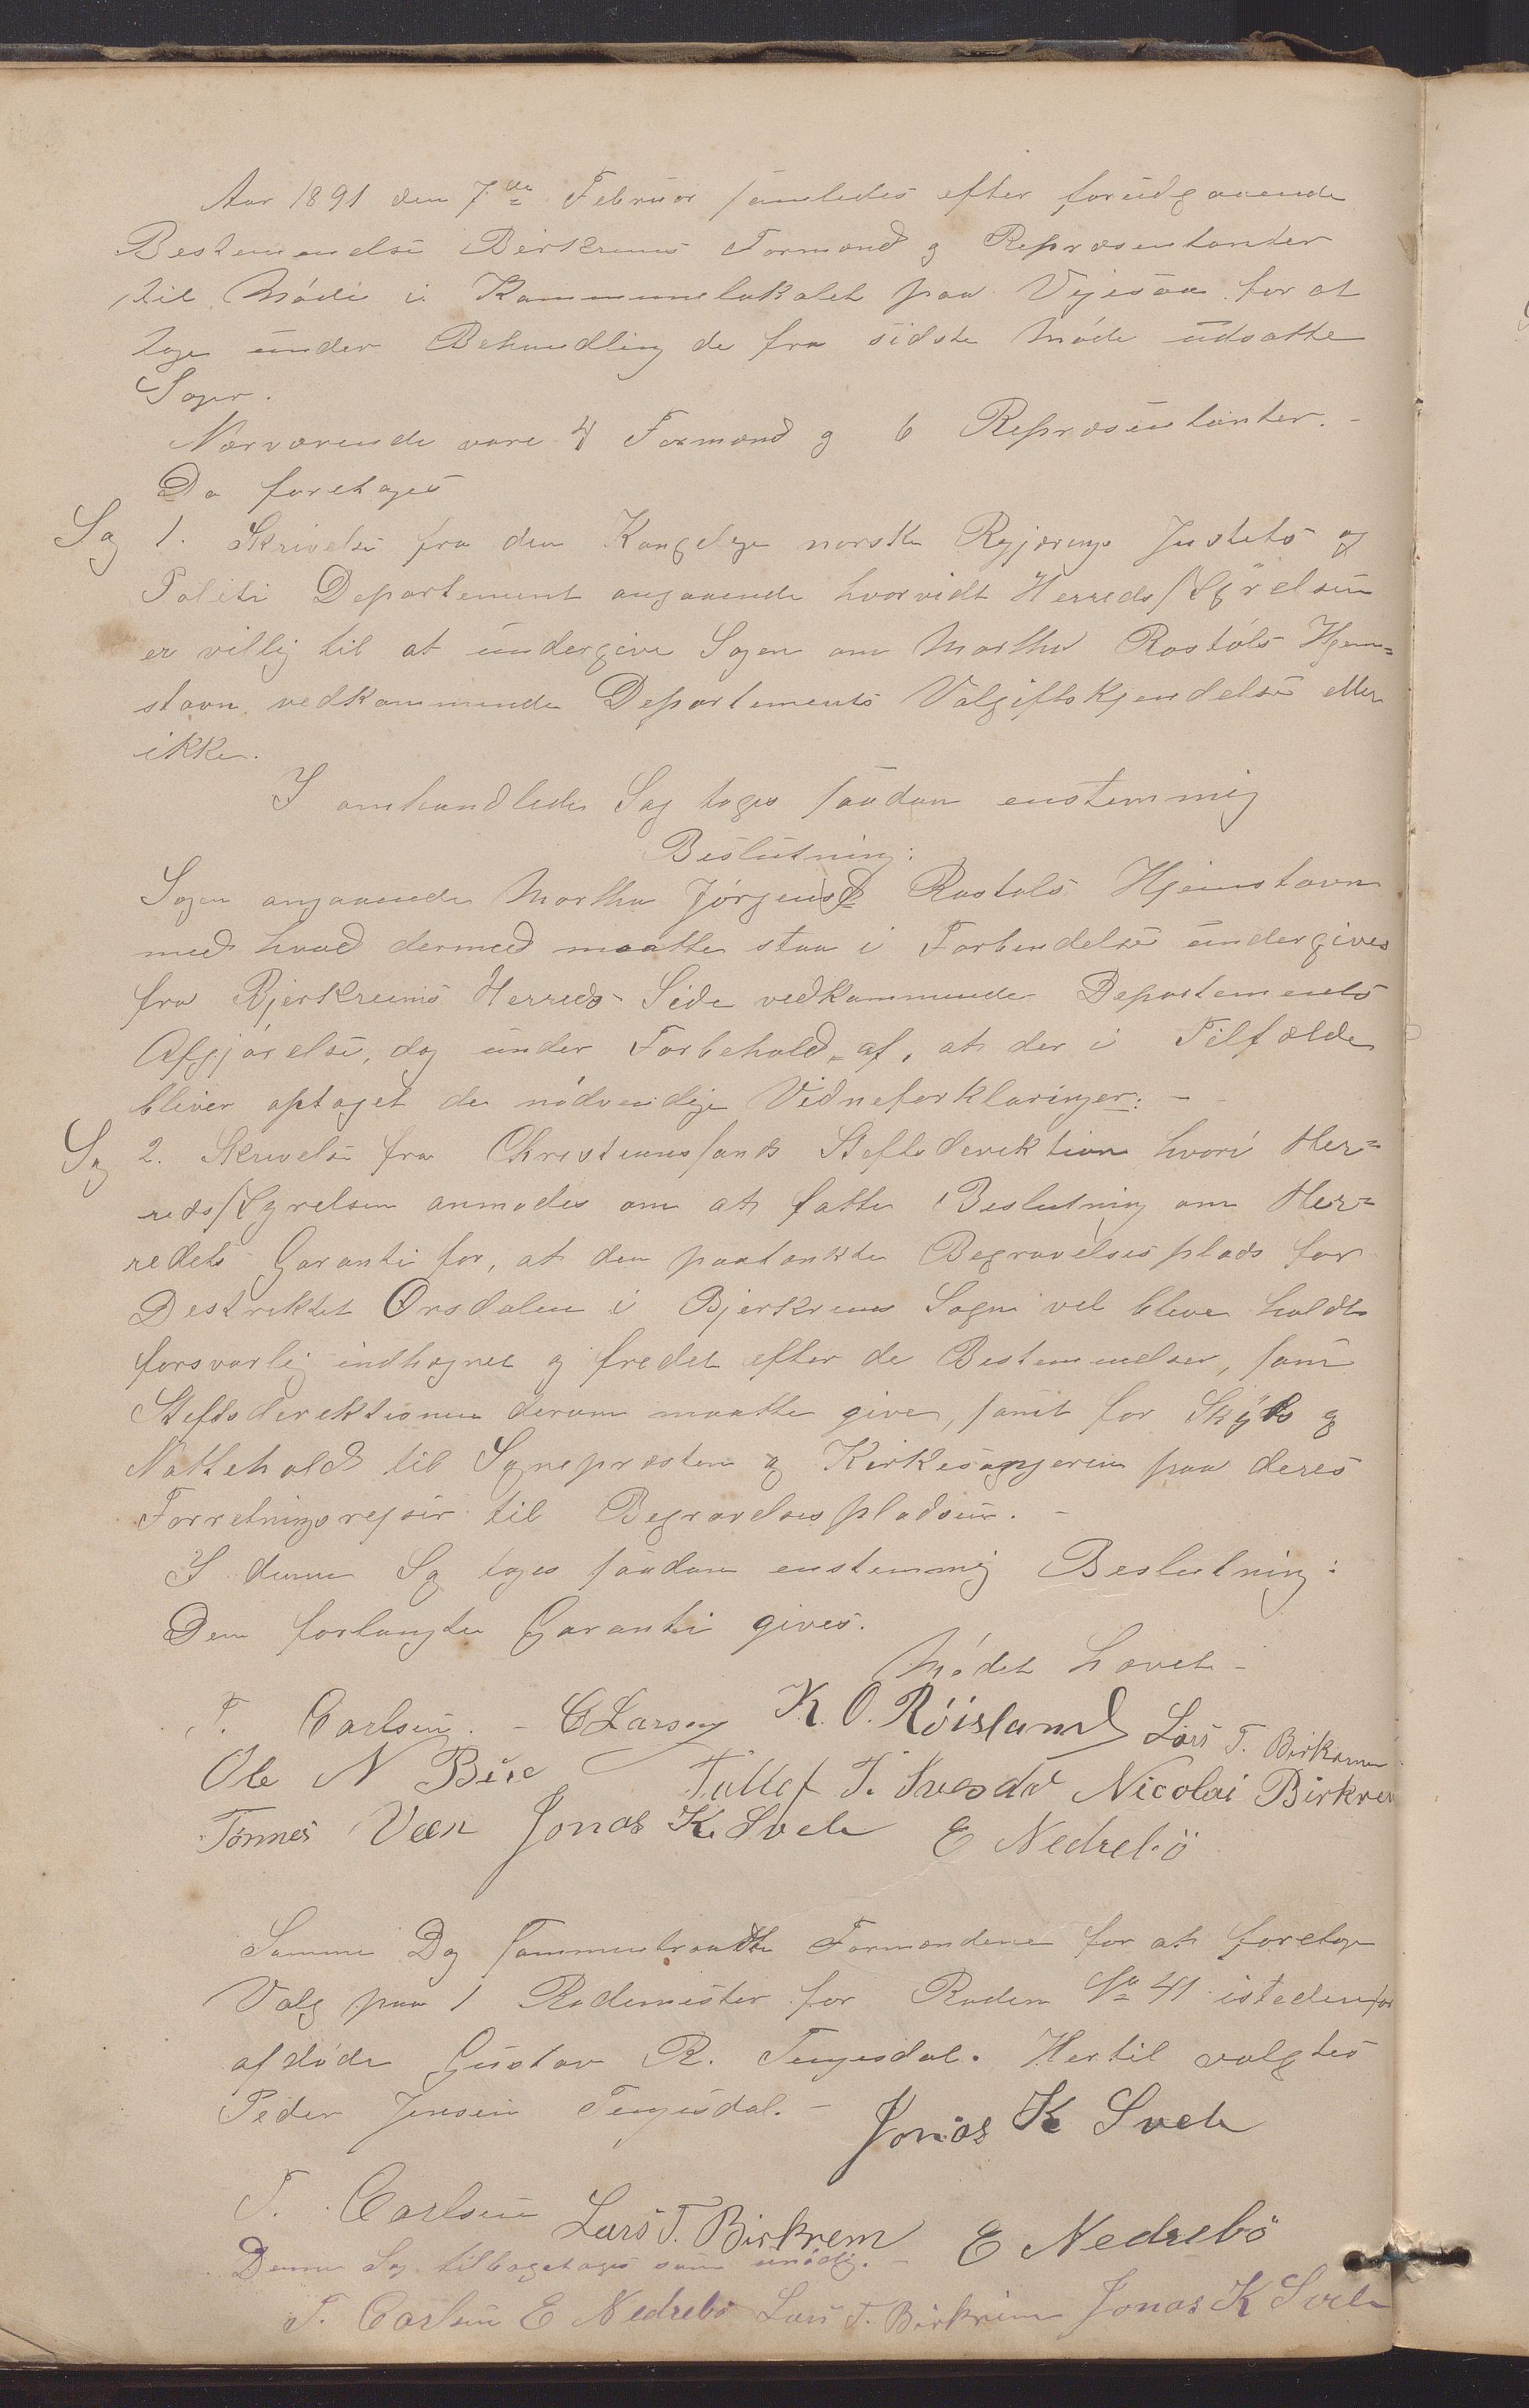 Aar 1891 den 7de Februar samledes efter forudgaaende
Bestemmelse Birkrems Formænd og Repræsentanter
til Möde i Kommunelokalet paa Vigesaa for at
tage under Behandling de fra sidste Möde udsatte
Sager.
Nærværende vare 4 Formænd og 6 Repræsentanter. -
Da foretoges
Sag 1. Skrivelse fra den Kongelige norske Regjerings Justets og
Politi Departement angaaende hvorvidt Herredsstyrelsen
er villig til at undergive Sagen om Martha Rostöls Hjem=
stavn vedkommende Departements Volgiftskjendelse eller
ikke.
I omhandlede Sag toges saadan enstemmig
Beslutning:
Sagen angaaende Martha Jörgensd Rostöls Hjemstavn
med hvad dermed maatte staa i Forbindelse undergives
fra Bjerkreims Herreds Side vedkommende Departements
Afgjörelse, dog under Forbehold af, at der i Tilfælde
bliver optaget de nödvendige Vidneforklaringer: -
Sag 2. Skrivelse fra Christianssands Stiftsdirektion hvori Her=
redsstyrelsen anmodes om at fatte Beslutning om Her=
redets Garanti for, at den paatænkte Begravelsesplads for
Destriktet Örsdalen i Bjerkrems Sogn vel bliver holdt
forsvarlig indhegnet og fredet efter de Bestemmelser, som
Stiftsdirektionen derom maatte give, samt for Skyds og
Nattehold til Sognepresten og Kirkesangeren paa deres
Forretningsrejser til Begravelsespladsen. -
I denne Sag toges saadan enstemmig Beslutning:
Den forlangte Garanti gives.
Mödet hævet -
T. Carlsen. - C Larsen K. O. Röisland Lars T. Birkrem
Ole N Bue Tollef T. Ivesdal Nicolai Birkrem
Tönnes Veen Jonas K. Svela E Nedrebö
Samme Dag sammentraadte Formændene for at foretage
Valg paa 1 Rodemester for Roden No 41 istedenfor
afdöde Gustav R. Tengesdal. Hertil valgtes
Peder Jensen Tengesdal. - Jonas K Svela
T. Carlsen Lars T. Birkrem E Nedrebö
Denne Sag tilbagetages som unödig. -
T. Carlsen E Nedrebö Lars T. Birkrem Jonas K Svela